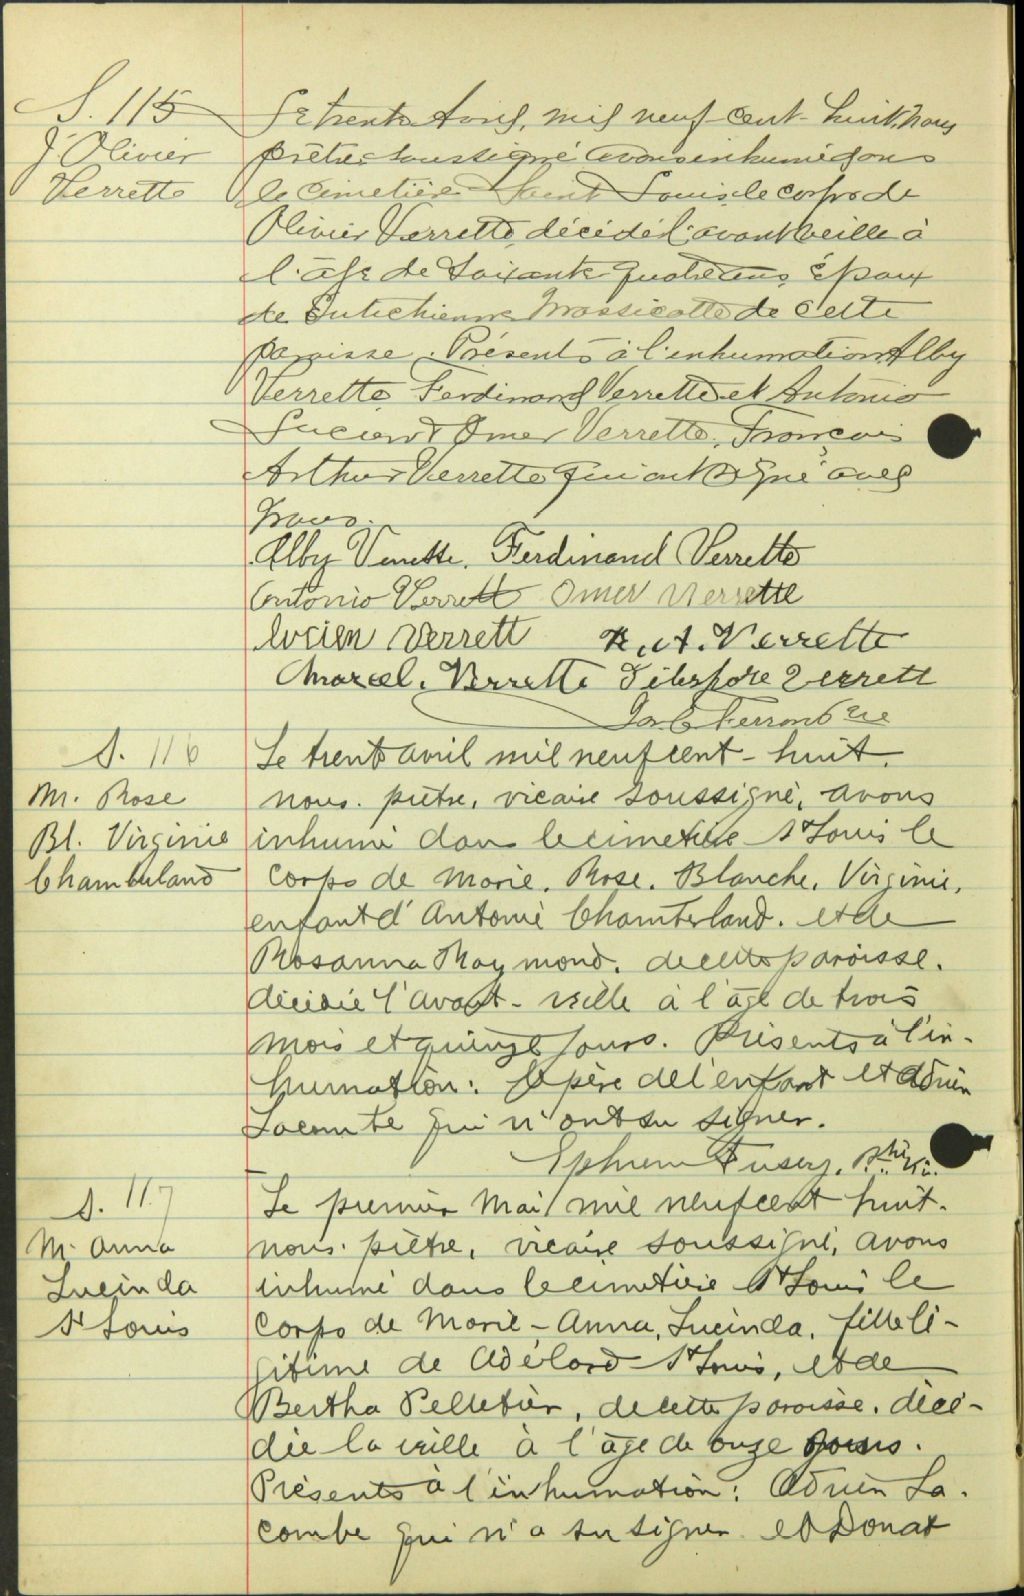 S. 115
J. Olivier
Verrette
Le trente Avril, mil neuf cent-huit, nous
prêtre soussigné avons inhumé dans
le cimetière Saint Louis le corps de
Olivier Verrette, décédé l'avant veille à
l'âge de soixante quatre ans, époux
de Eutichienne Massicotte de cette
paroisse. Présents à l'inhumation Alby
Verrette, Ferdinand Verrette et Antonio
Lucien & Omer Verrette, François
Arthur Verrette qui ont signé avec
nous.
Alby Verrette. Ferdinand Verrette
Antonio Verrett Omer Verrette
Lucien Verrett A. Verrette
Marcel. Verrette Télesphore Verrett
S. 116
M. Rose
Bl. Virginie
Chamberland
Le trente avril mil neuf cent-huit,
nous. prêtre, vicaire soussigné, avons
inhumé dans le cimetière St Louis le
corps de Marie. Rose. Blanche. Virginie,
enfant d'Antoine Chamberland. et de
Rosanna Raymond. de cette paroisse.
décédée l'avant-veille à l'âge de trois
mois et quinze jours. Présents à l'in-
humation: le père de l'enfant et Adrien
Lacombe qui n'ont su signer.
Ephrem Fusey, ptre vic.
S. 117
M. Anna
Lucinda
St Louis
Le premier Mai mil neuf cent huit.
nous. prêtre, vicaire soussigné, avons
inhumé dans le cimetière St Louis le
corps de Marie-Anna, Lucinda, fille lé-
gitime de Adélard St Louis, et de
Bertha Pelletier, de cette paroisse. décé-
dée la veille à l'âge de onze jours.
Présents à l'inhumation: Adrien La-
combe qui n'a su signer et Donat